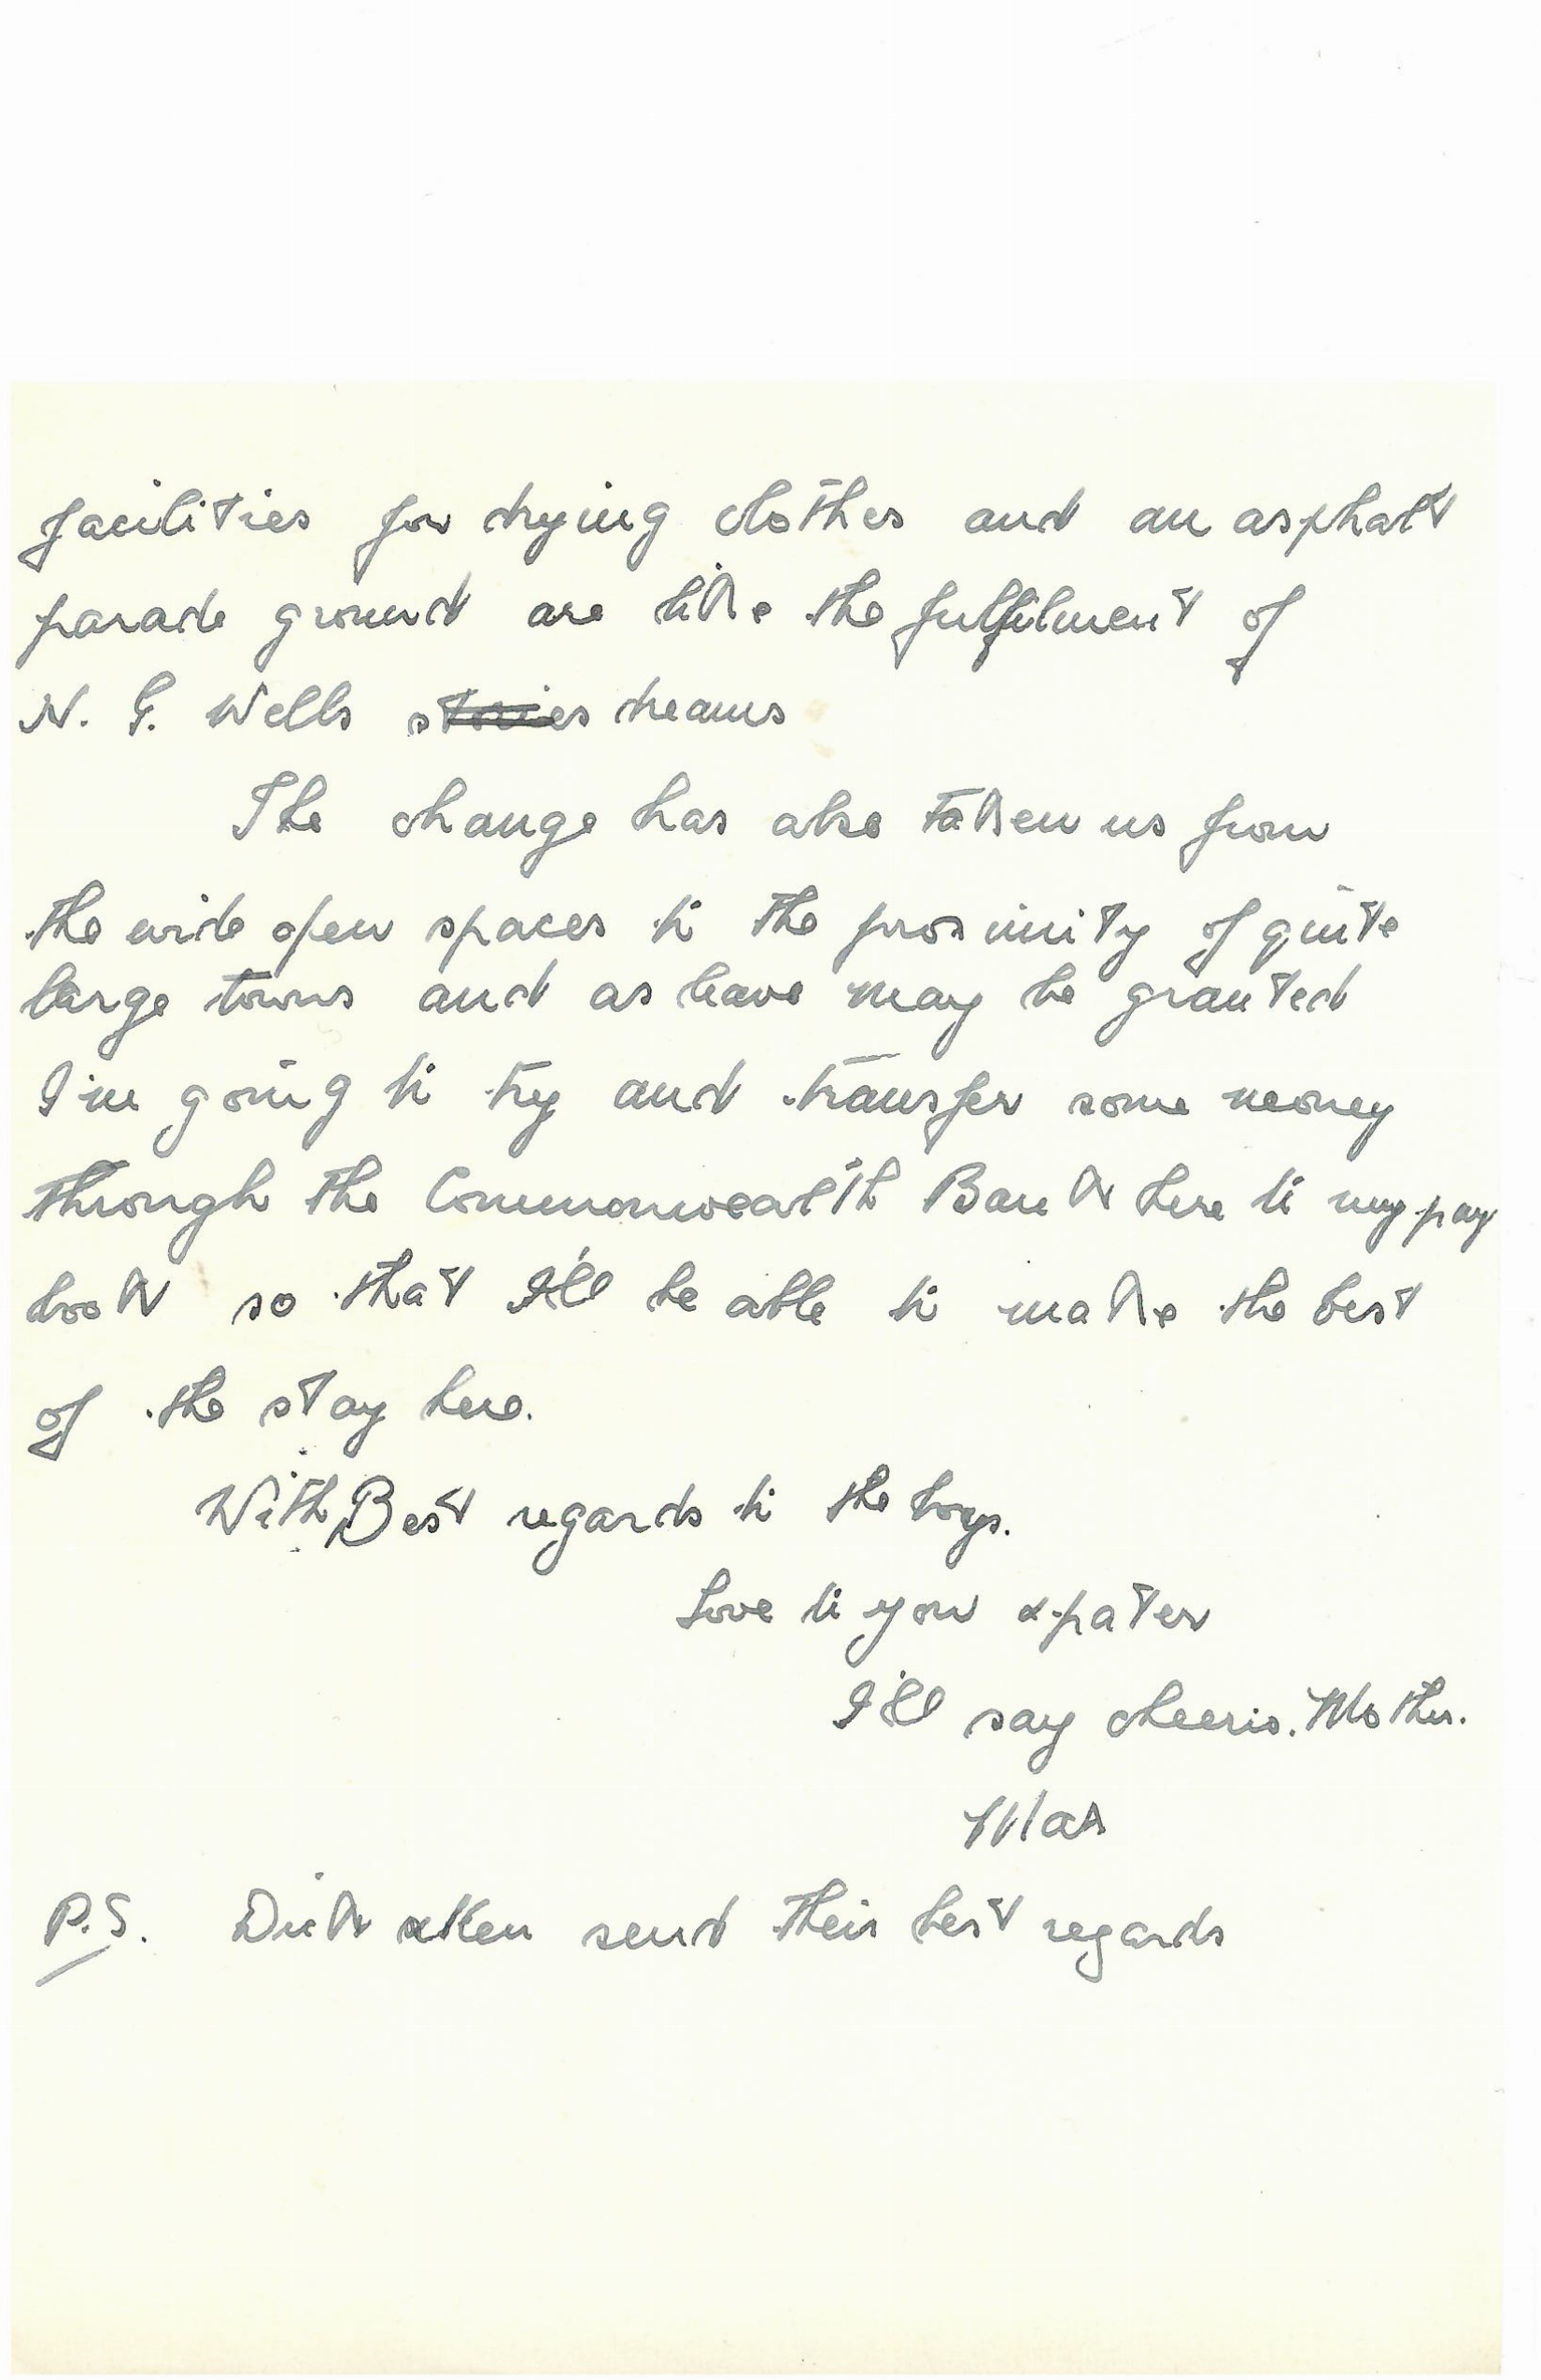 facilities for drying clothes and an asphalt
parade ground are like the fulfilment of
H. G. Wells stories dreams
The change has also taken us from
the wide open spaces to the proximity of quite
large towns and as leave may be granted
I'm going to try and transfer some money
through the Commonwealth Bank here to my pay
book so that I'll be able to make the best
of the stay here.
With Best regards to the boys.
Love to you & pater
I'll say cheerio. Mother.
Max
P.S. Dick & Ken send their best regards